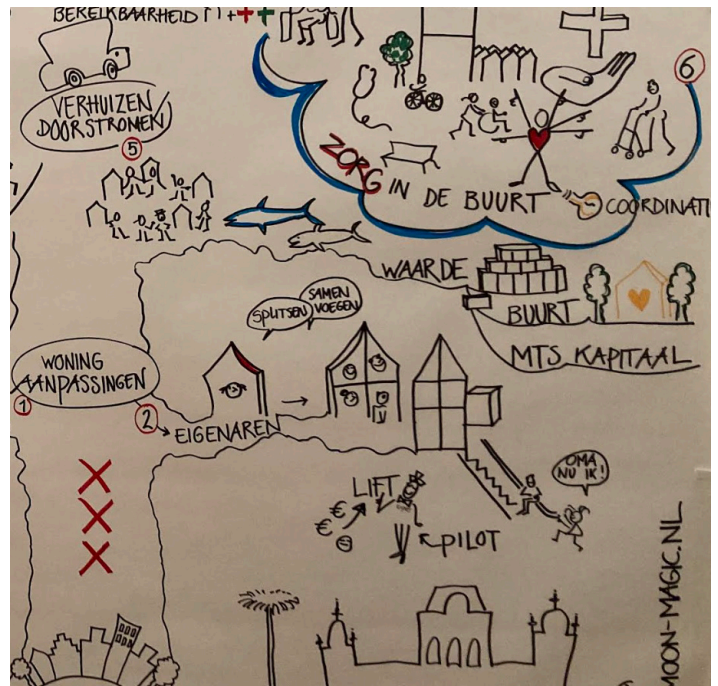 BEREIKBAARHEID
6
VERHUIZEN
DOORSTROMEN
5
ZORG IN DE BUURT
COORDINATI
WAARDE
BUURT
MTS KAPITAAL
SPLITSEN
SAMEN
VOEGEN
WONING
AANPASSINGEN
1
2
EIGENAREN
LIFT
€
€
PILOT
OMA
NU IK!
MOON-MAGIC.NL